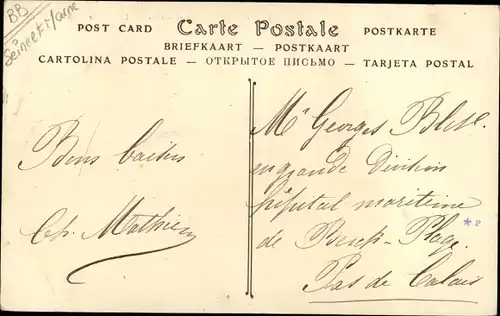 BB
Seine et Marne
POST CARD Carte Postale POSTKARTE
BRIEFKAART — POSTKAART
CARTOLINA POSTALE — ОТКРЫТОЕ ПИСЬМО — TARJETA POSTAL
Mr Georges
en grande Division
Bons baisers
hôpital maritime
Ch. Mathieu
de Berck-Plage
Pas de Calais